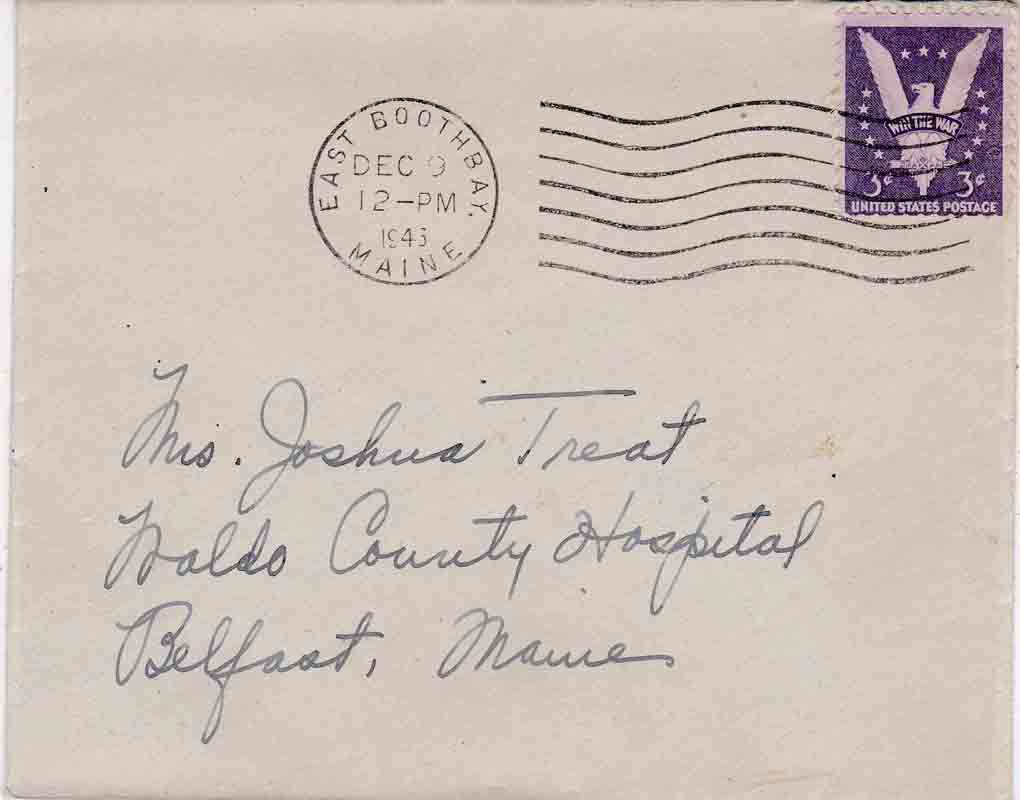 EAST BOOTHBAY,
DEC 9
12-PM
1943
MAINE
WIN THE WAR
3¢ 3¢
UNITED STATES POSTAGE
Mrs. Joshua Treat
Waldo County Hospital
Belfast, Maine